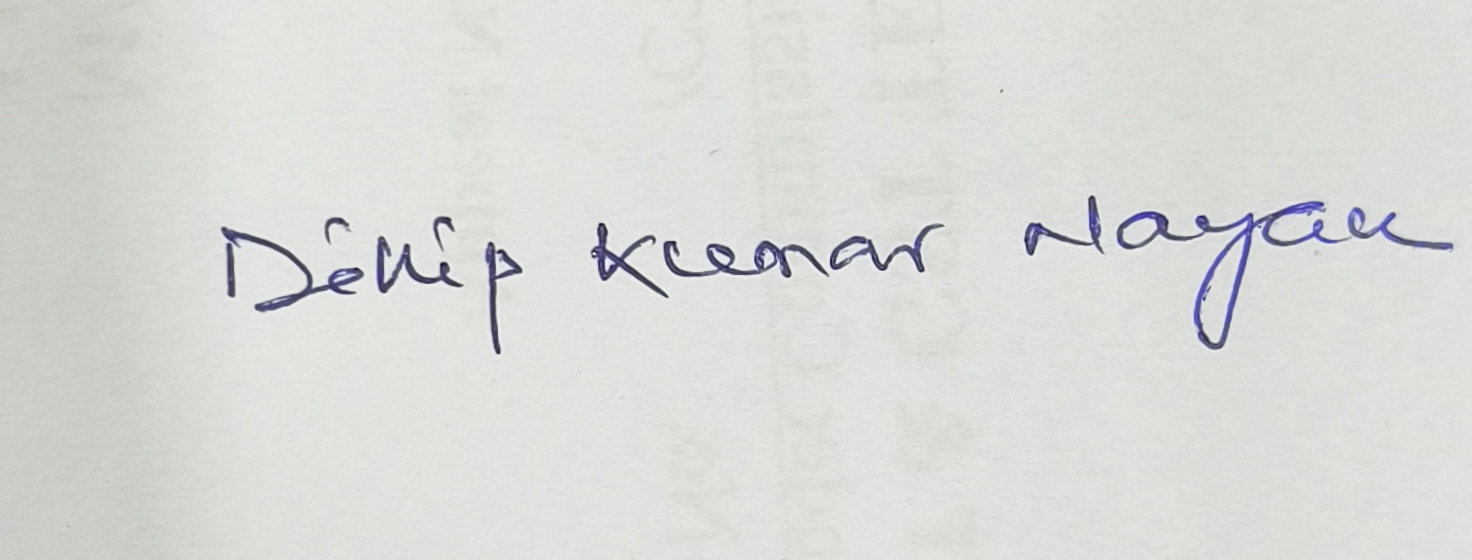 Dillip Kumar Nayak